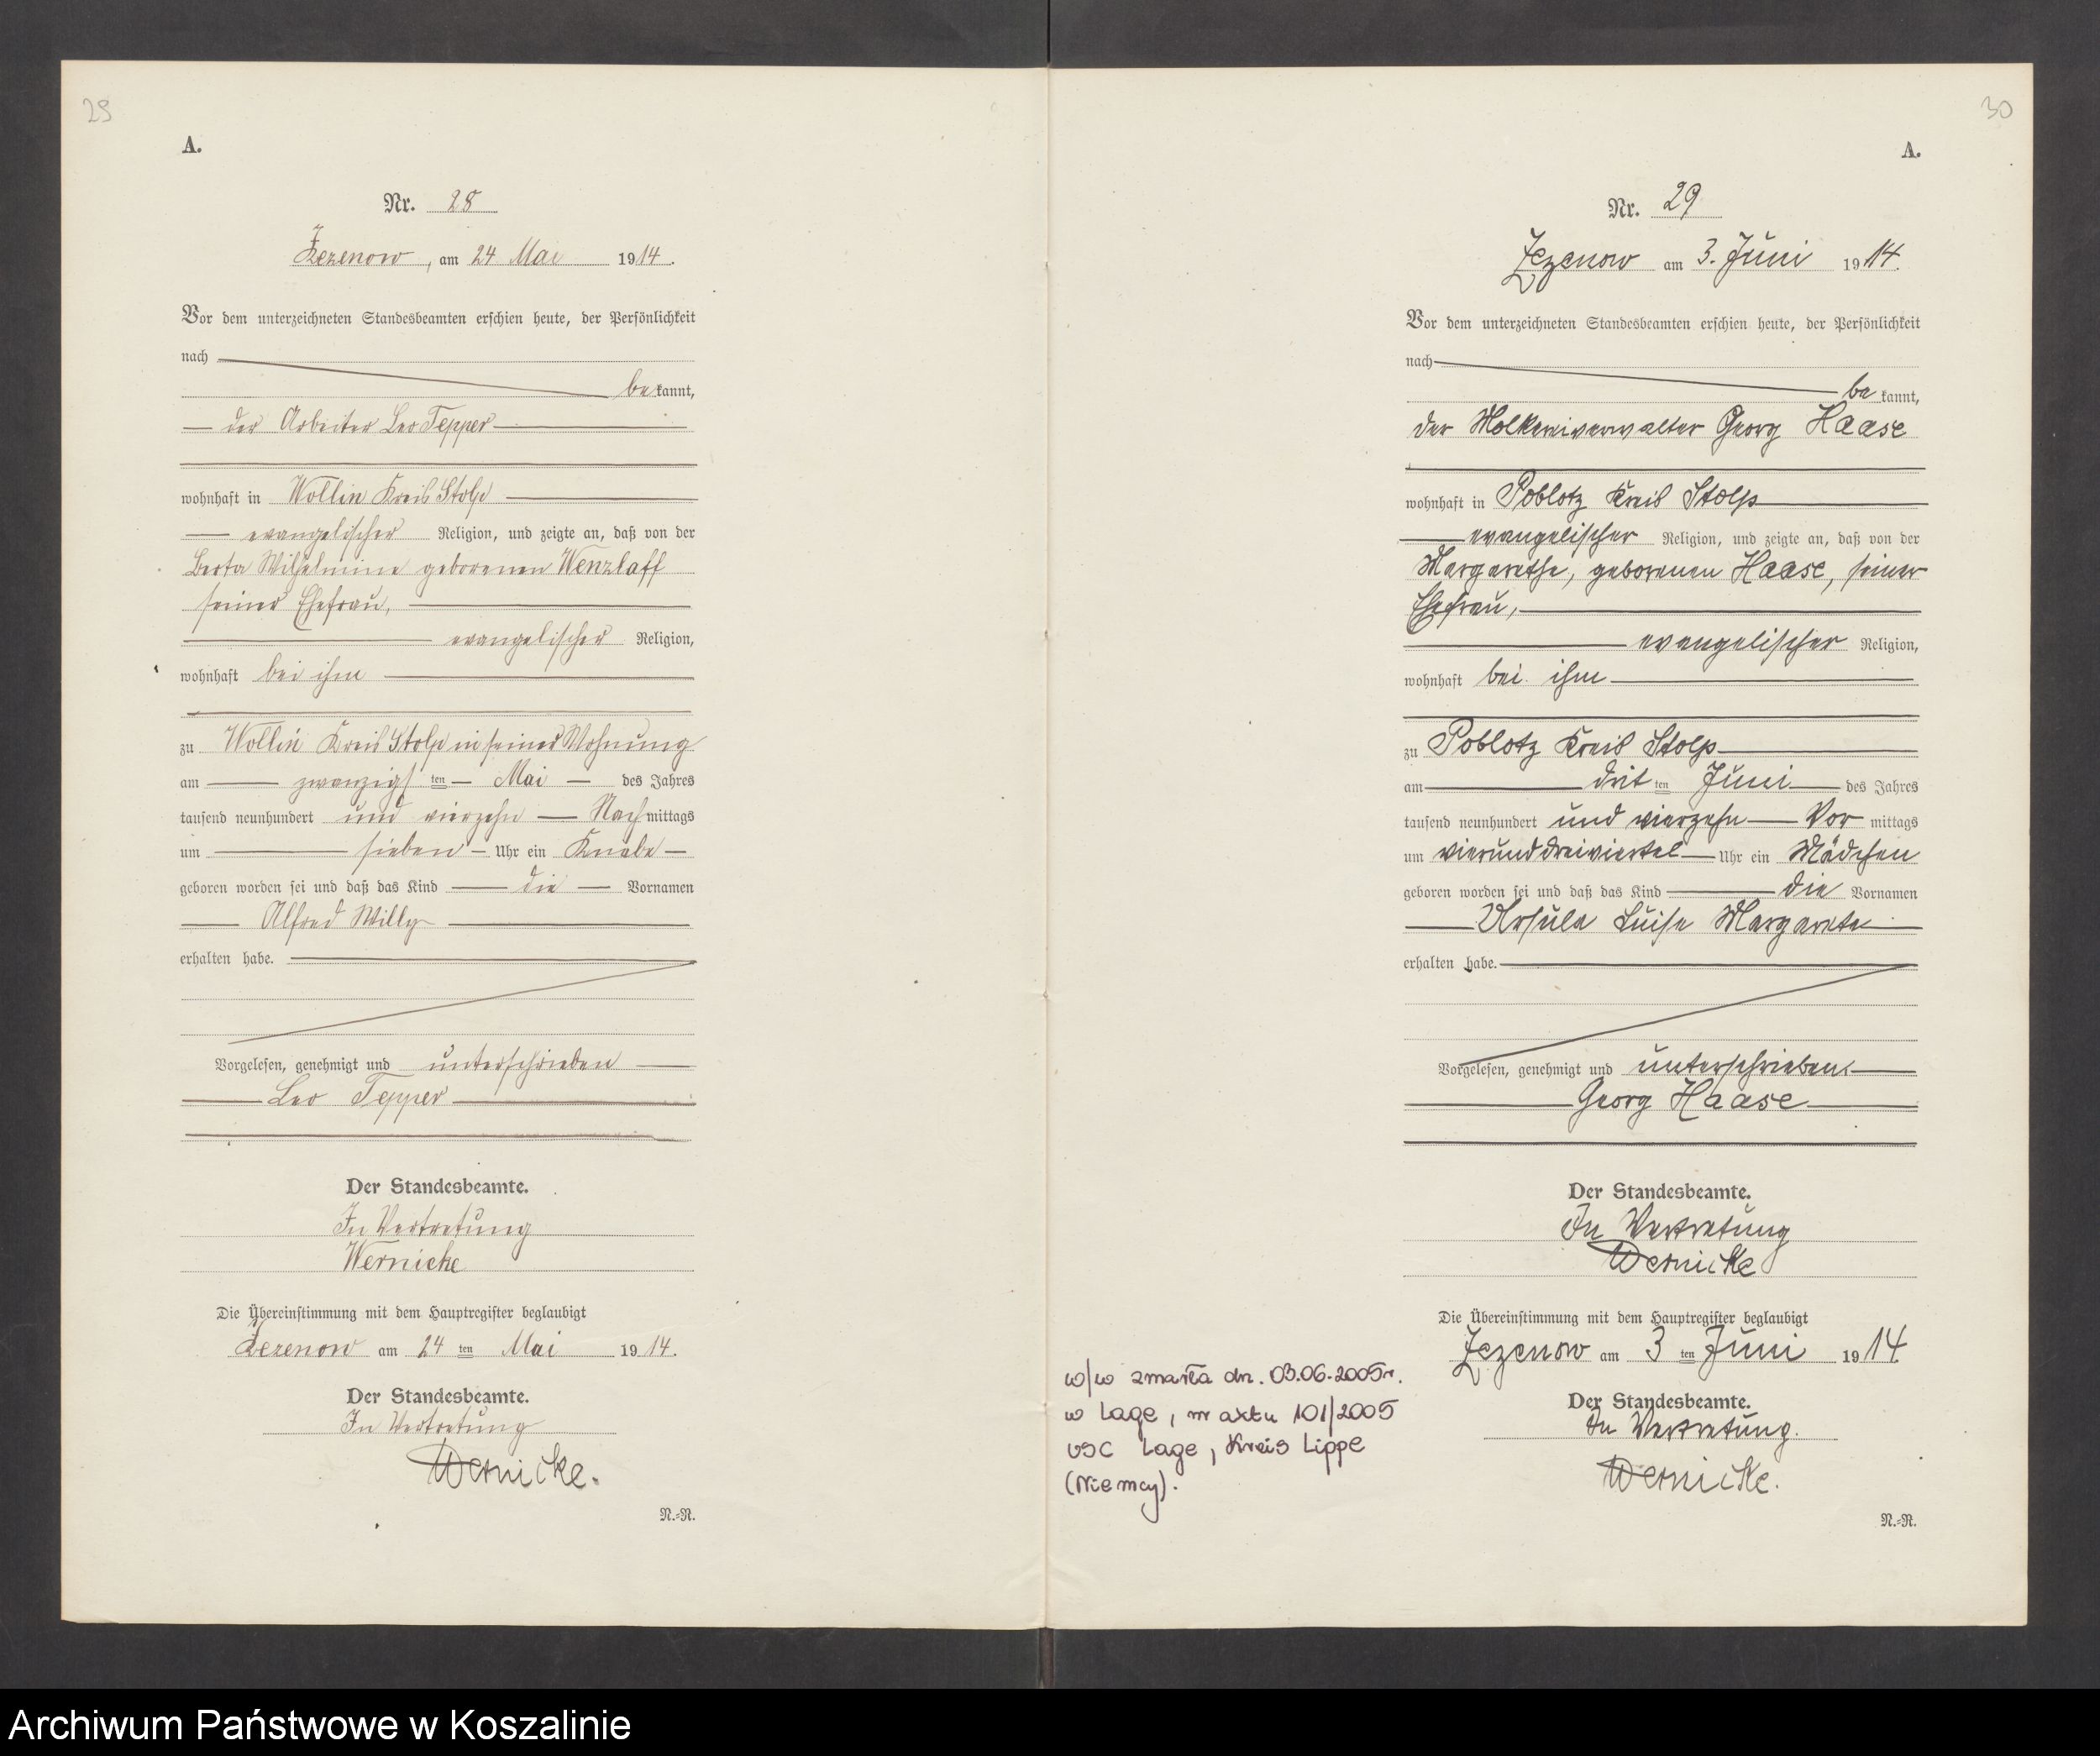 29
A.
Nr. 28
Zezenow, am 24 Mai 1914.
Vor dem unterzeichneten Standesbeamten erschien heute, der Persönlichkeit
nach
bekannt,
der Arbeiter Leo Tepper
wohnhaft in Wollin Kreis Stolp
evangelischer Religion, und zeigte an, daß von der
Berta Wilhelmine geborenen Wenzlaff
seiner Ehefrau,
evangelischer Religion,
wohnhaft bei ihm
zu Wollin Kreis Stolp in seiner Wohnung
am zwanzigsten Mai des Jahres
tausend neunhundert und vierzehn Nachmittags
um sieben Uhr ein Knabe
geboren worden sei und daß das Kind die Vornamen
Alfred Willy
erhalten habe.
Vorgelesen, genehmigt und unterschrieben
Leo Tepper
Der Standesbeamte.
In Vertretung
Wernicke
Die Übereinstimmung mit dem Hauptregister beglaubigt
Zezenow am 24 ten Mai 1914.
Der Standesbeamte.
In Vertretung
Wernicke.
N.=R.
30
A.
Nr. 29
Zezenow am 3. Juni 1914.
Vor dem unterzeichneten Standesbeamten erschien heute, der Persönlichkeit
nach
be kannt,
der Molkereiverwalter Georg Haase
wohnhaft in Poblotz Kreis Stolp
evangelischer Religion, und zeigte an, daß von der
Margarethe, geborenen Haase, seiner
Ehefrau,
evangelischer Religion,
wohnhaft bei ihm
zu Poblotz Kreis Stolp
am dritten Juni des Jahres
tausend neunhundert und vierzehn Vor mittags
um vierunddreiviertel Uhr ein Mädchen
geboren worden sei und daß das Kind die Vornamen
Ursula Luise Margarete
erhalten habe.
Vorgelesen, genehmigt und unterschrieben.
Georg Haase
Der Standesbeamte.
In Vertretung
Wernicke
Die Übereinstimmung mit dem Hauptregister beglaubigt
Zezenow am 3 ten Juni 1914
Der Standesbeamte.
In Vertretung.
Wernicke.
N.=R.
w/w zmarła dn. 03.06.2005r.
w Lage, nr aktu 101/2005
USC Lage, Kreis Lippe
(Niemcy).
Archiwum Państwowe w Koszalinie